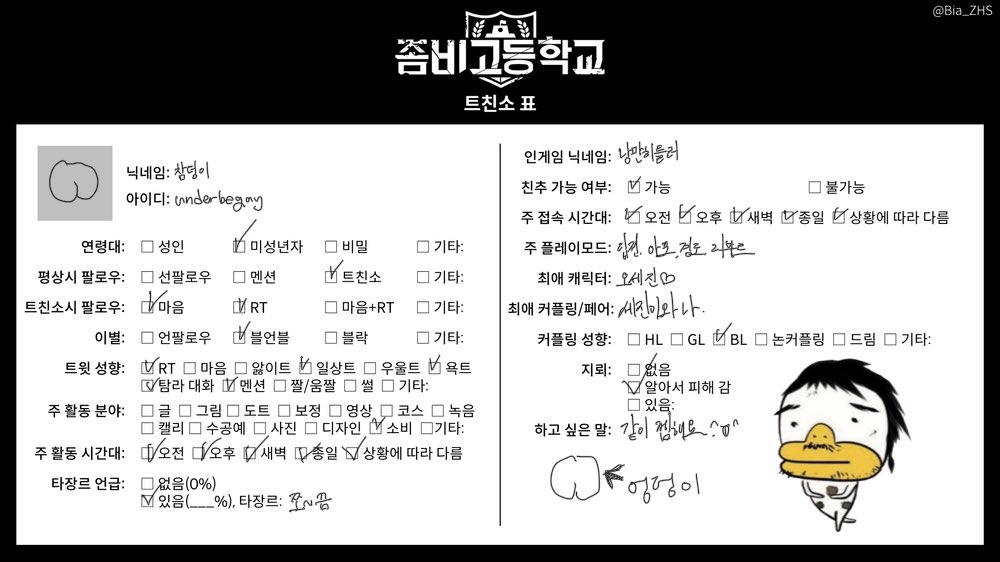 @Bia_ZHS
좀비고등학교
트친소 표
닉네임: 참덩이
아이디: underbegay
연령대: 성인 미성년자 비밀 기타:
평상시 팔로우: 선팔로우 멘션 트친소 기타:
트친소시 팔로우: 마음 RT 마음+RT 기타:
이별: 언팔로우 블언블 블락 기타:
트윗 성향: RT 마음 앓이트 일상트 우울트 욕트
탐라 대화 멘션 짤/움짤 썰 기타:
주 활동 분야: 글 그림 도트 보정 영상 코스 녹음
캘리 수공예 사진 디자인 소비 기타:
주 활동 시간대: 오전 오후 새벽 종일 상황에 따라 다름
타장르 언급: 없음(0%)
있음(___%), 타장르: 쪼~끔
인게임 닉네임: 낭만히틀러
친추 가능 여부: 가능 불가능
주 접속 시간대: 오전 오후 새벽 종일 상황에 따라 다름
주 플레이모드: 탑전, 아포, 경도, 리부트
최애 캐릭터: 오세진
최애 커플링/페어: 세진이와 나.
커플링 성향: HL GL BL 논커플링 드림 기타:
지뢰: 없음
알아서 피해 감
있음:
하고 싶은 말: 같이 겜해요
엉덩이